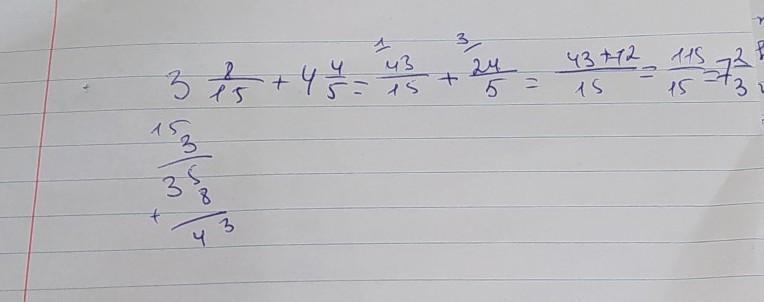 1/ 3/
3 8/15 + 4 4/5 = 43/15 + 24/5 = 43+72/15 = 115/15 = 7 2/3
15
3
35
8
+
43